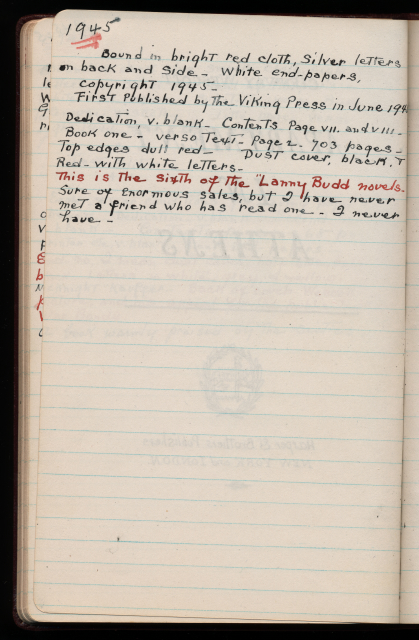 1945
Bound in bright red cloth, Silver letters
on back and side - White end-papers,
copyright 1945 -
First Published by the Viking Press in June 194
Dedication, v. blank - Contents Page VII. and VIII -
Book one - verso Text - Page 2 - 703 pages -
Top edges dull red - Dust cover, black, &
Red - with white letters -
This is the sixth of the "Lanny Budd novels.
Sure of Enormous sales, but I have never
met a friend who has read one - I never
have -
ATHENS
Harper & Brothers Publishers
NEW YORK and LONDON